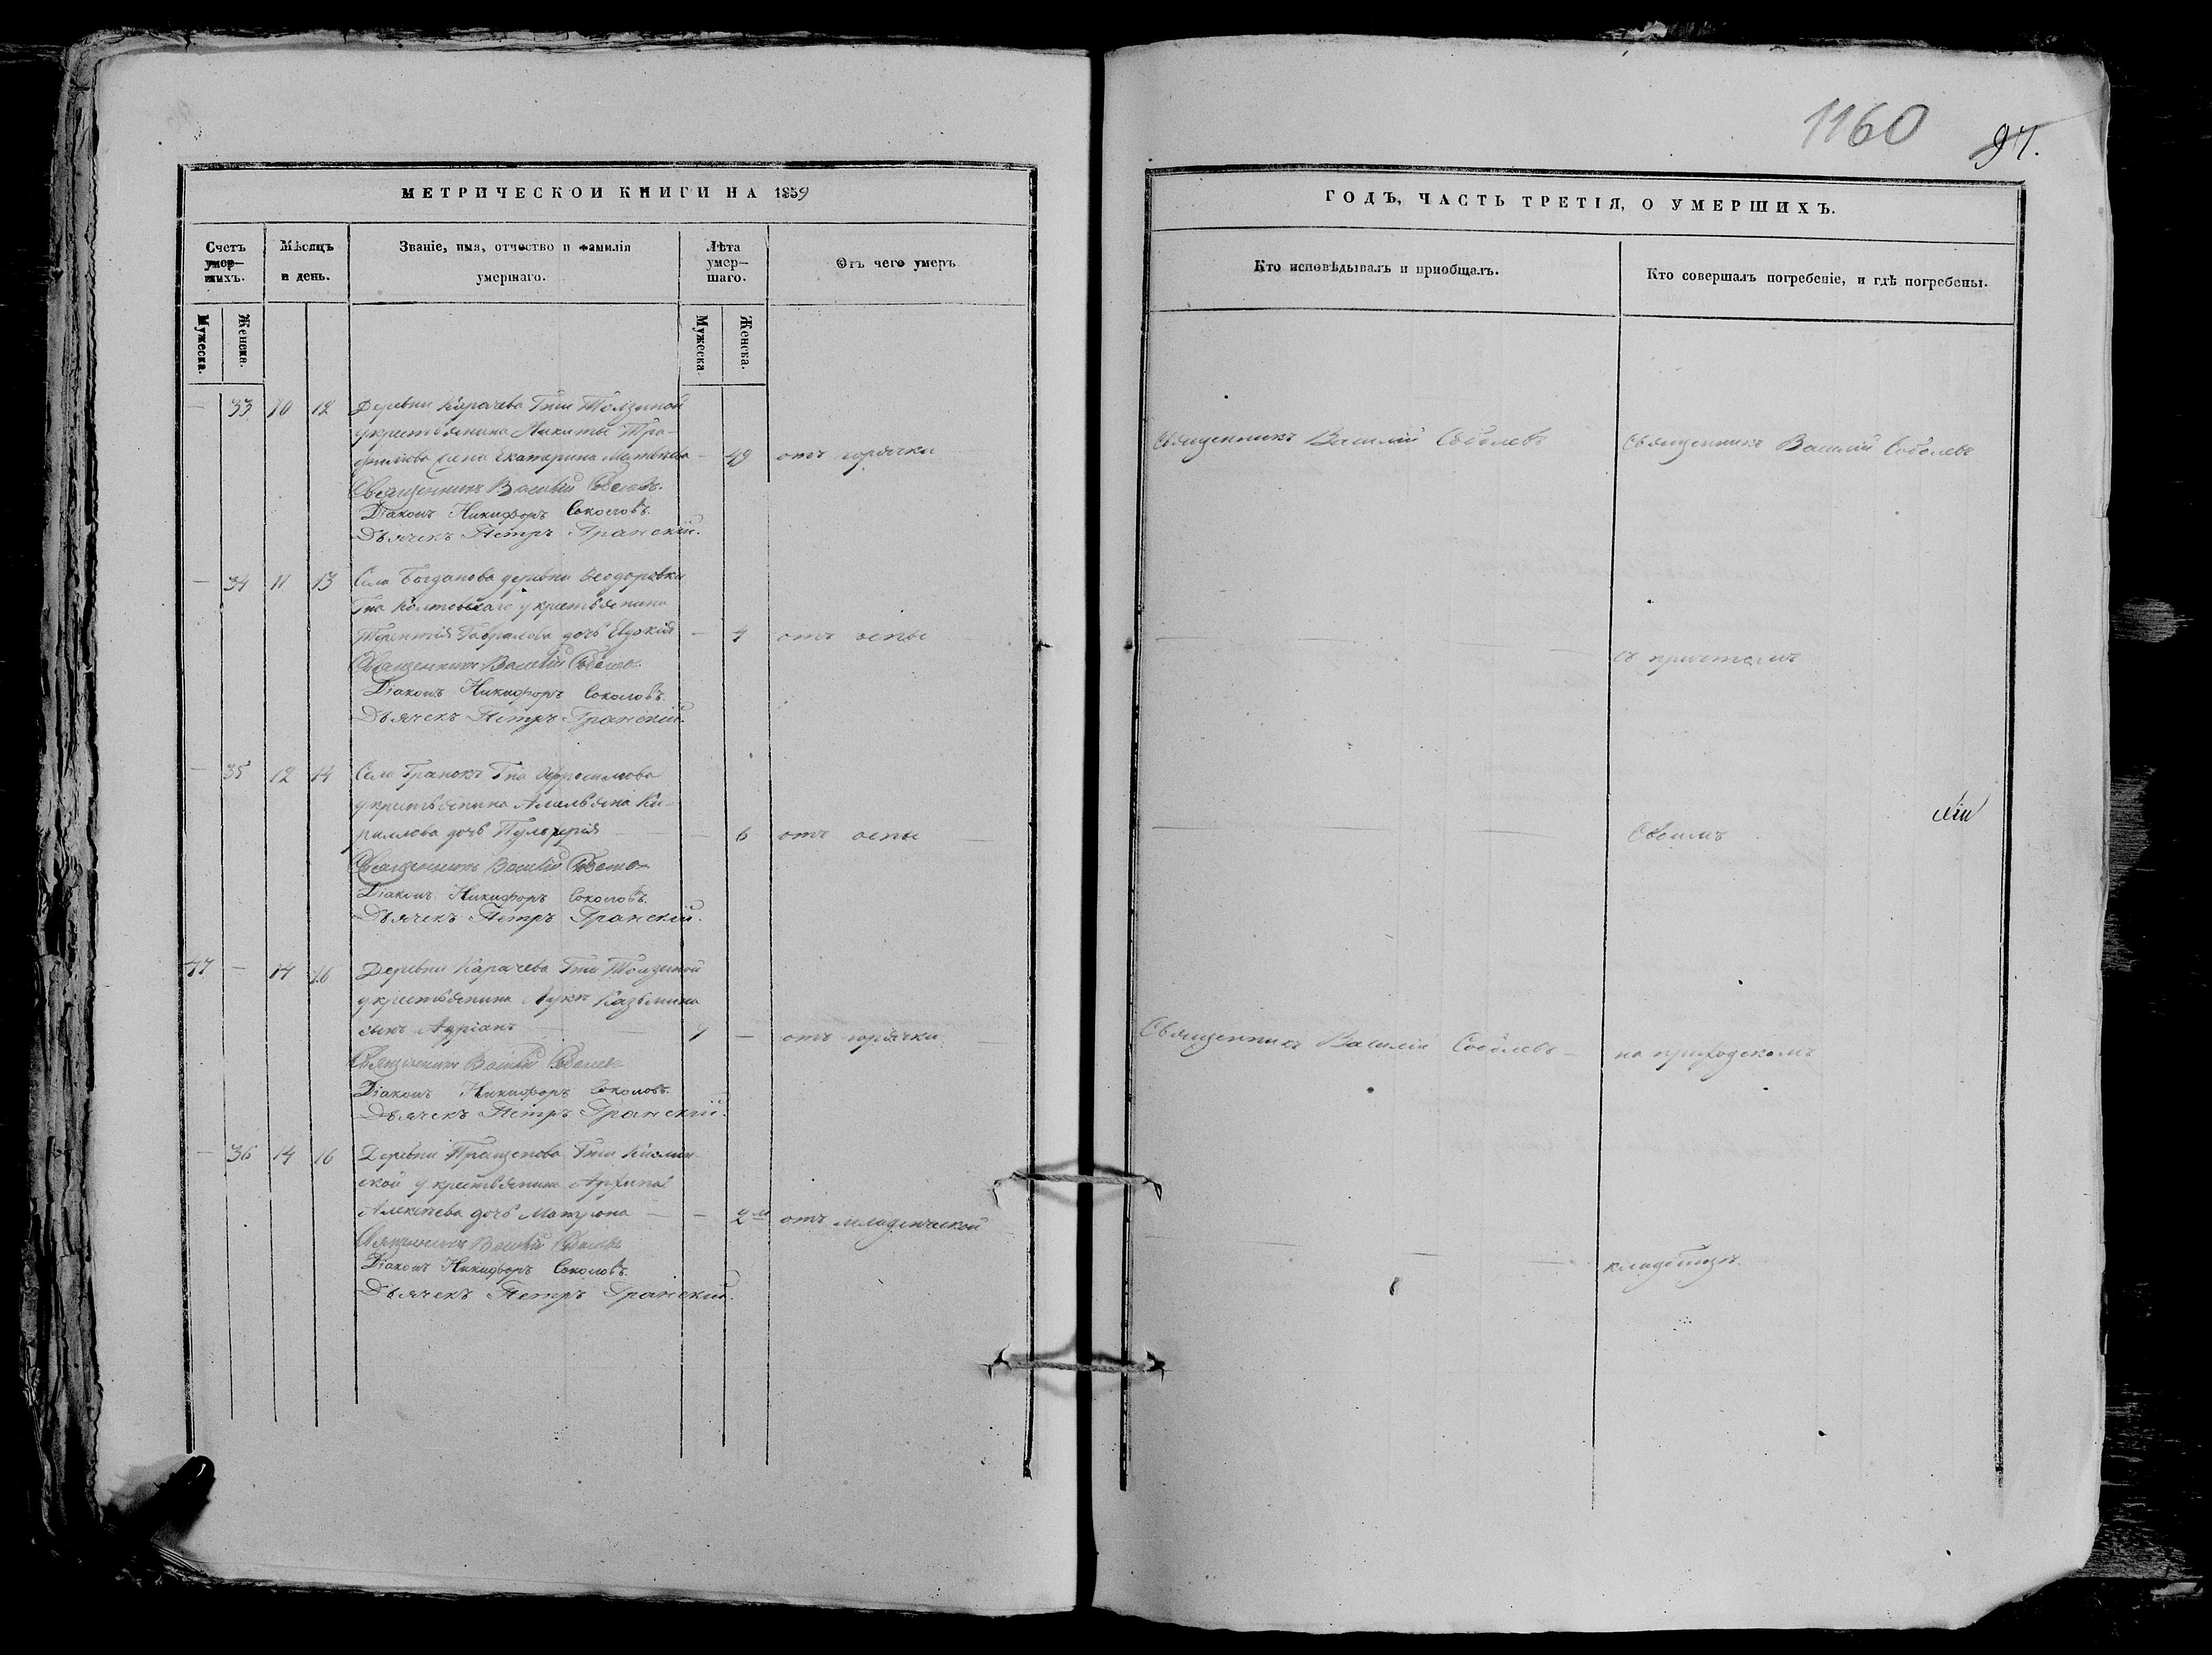 1160
97.
МЕТРИЧЕСКОЙ КНИГИ НА 1859
Счетъ умер-шихъ.
Мѣсяцъ и день.
Званіе, имя, отчество и фамилія умершаго.
Лѣта умер-шаго.
Отъ чего умеръ
Мужеска.
Женска.
Мужеска
Женска.
— 33 10 12 Деревни Карачева Гжи Толзиной
крестьянина Никиты Тро-
фимова жена Екатерина Матвѣева — 49 отъ горячки
Священникъ Василій Соболевъ.
Діаконъ Никифоръ Соколовъ.
Дьячекъ Петръ Гранскій.
— 34 11 13 Села Богданова деревни Ѳеодоровки
Гна Колтовскаго крестьянина
Терентія Гаврилова дочь Евдокія — 4 отъ оспы
Священникъ Василій Соболевъ.
Діаконъ Никифоръ Соколовъ.
Дьячекъ Петръ Гранскій.
— 35 12 14 Села Гранокъ Гна
крестьянина Амельяна Ки-
рилова дочь Пульхерія — 6 отъ оспы
Священникъ Василій Соболевъ
Діаконъ Никифоръ Соколовъ.
Дьячекъ Петръ Гранскій.
47 — 14 16 Деревни Карачева Гжи Толзиной
крестьянина Луки Казьмина
сынъ Адріанъ — отъ горячки
Священникъ Василій Соболевъ
Діаконъ Никифоръ Соколовъ.
Дьячекъ Петръ Гранскій.
— 36 14 16 Деревни Гжи
ской крестьянина Архипа
Алексѣева дочь Матрона — — 2 м отъ младенческой
Священникъ Василій Соболевъ
Діаконъ Никифоръ Соколовъ.
Дьячекъ Петръ Гранскій.
ГОДЪ, ЧАСТЬ ТРЕТІЯ, О УМЕРШИХЪ.
Кто исповѣдывалъ и пріобщалъ.
Кто совершалъ погребеніе, и гдѣ погребены.
Священникъ Василій Соболевъ
Священникъ Василій Соболевъ
съ причтомъ
своимъ
Священникъ Василій Соболевъ — на приходскомъ
кладбищѣ.